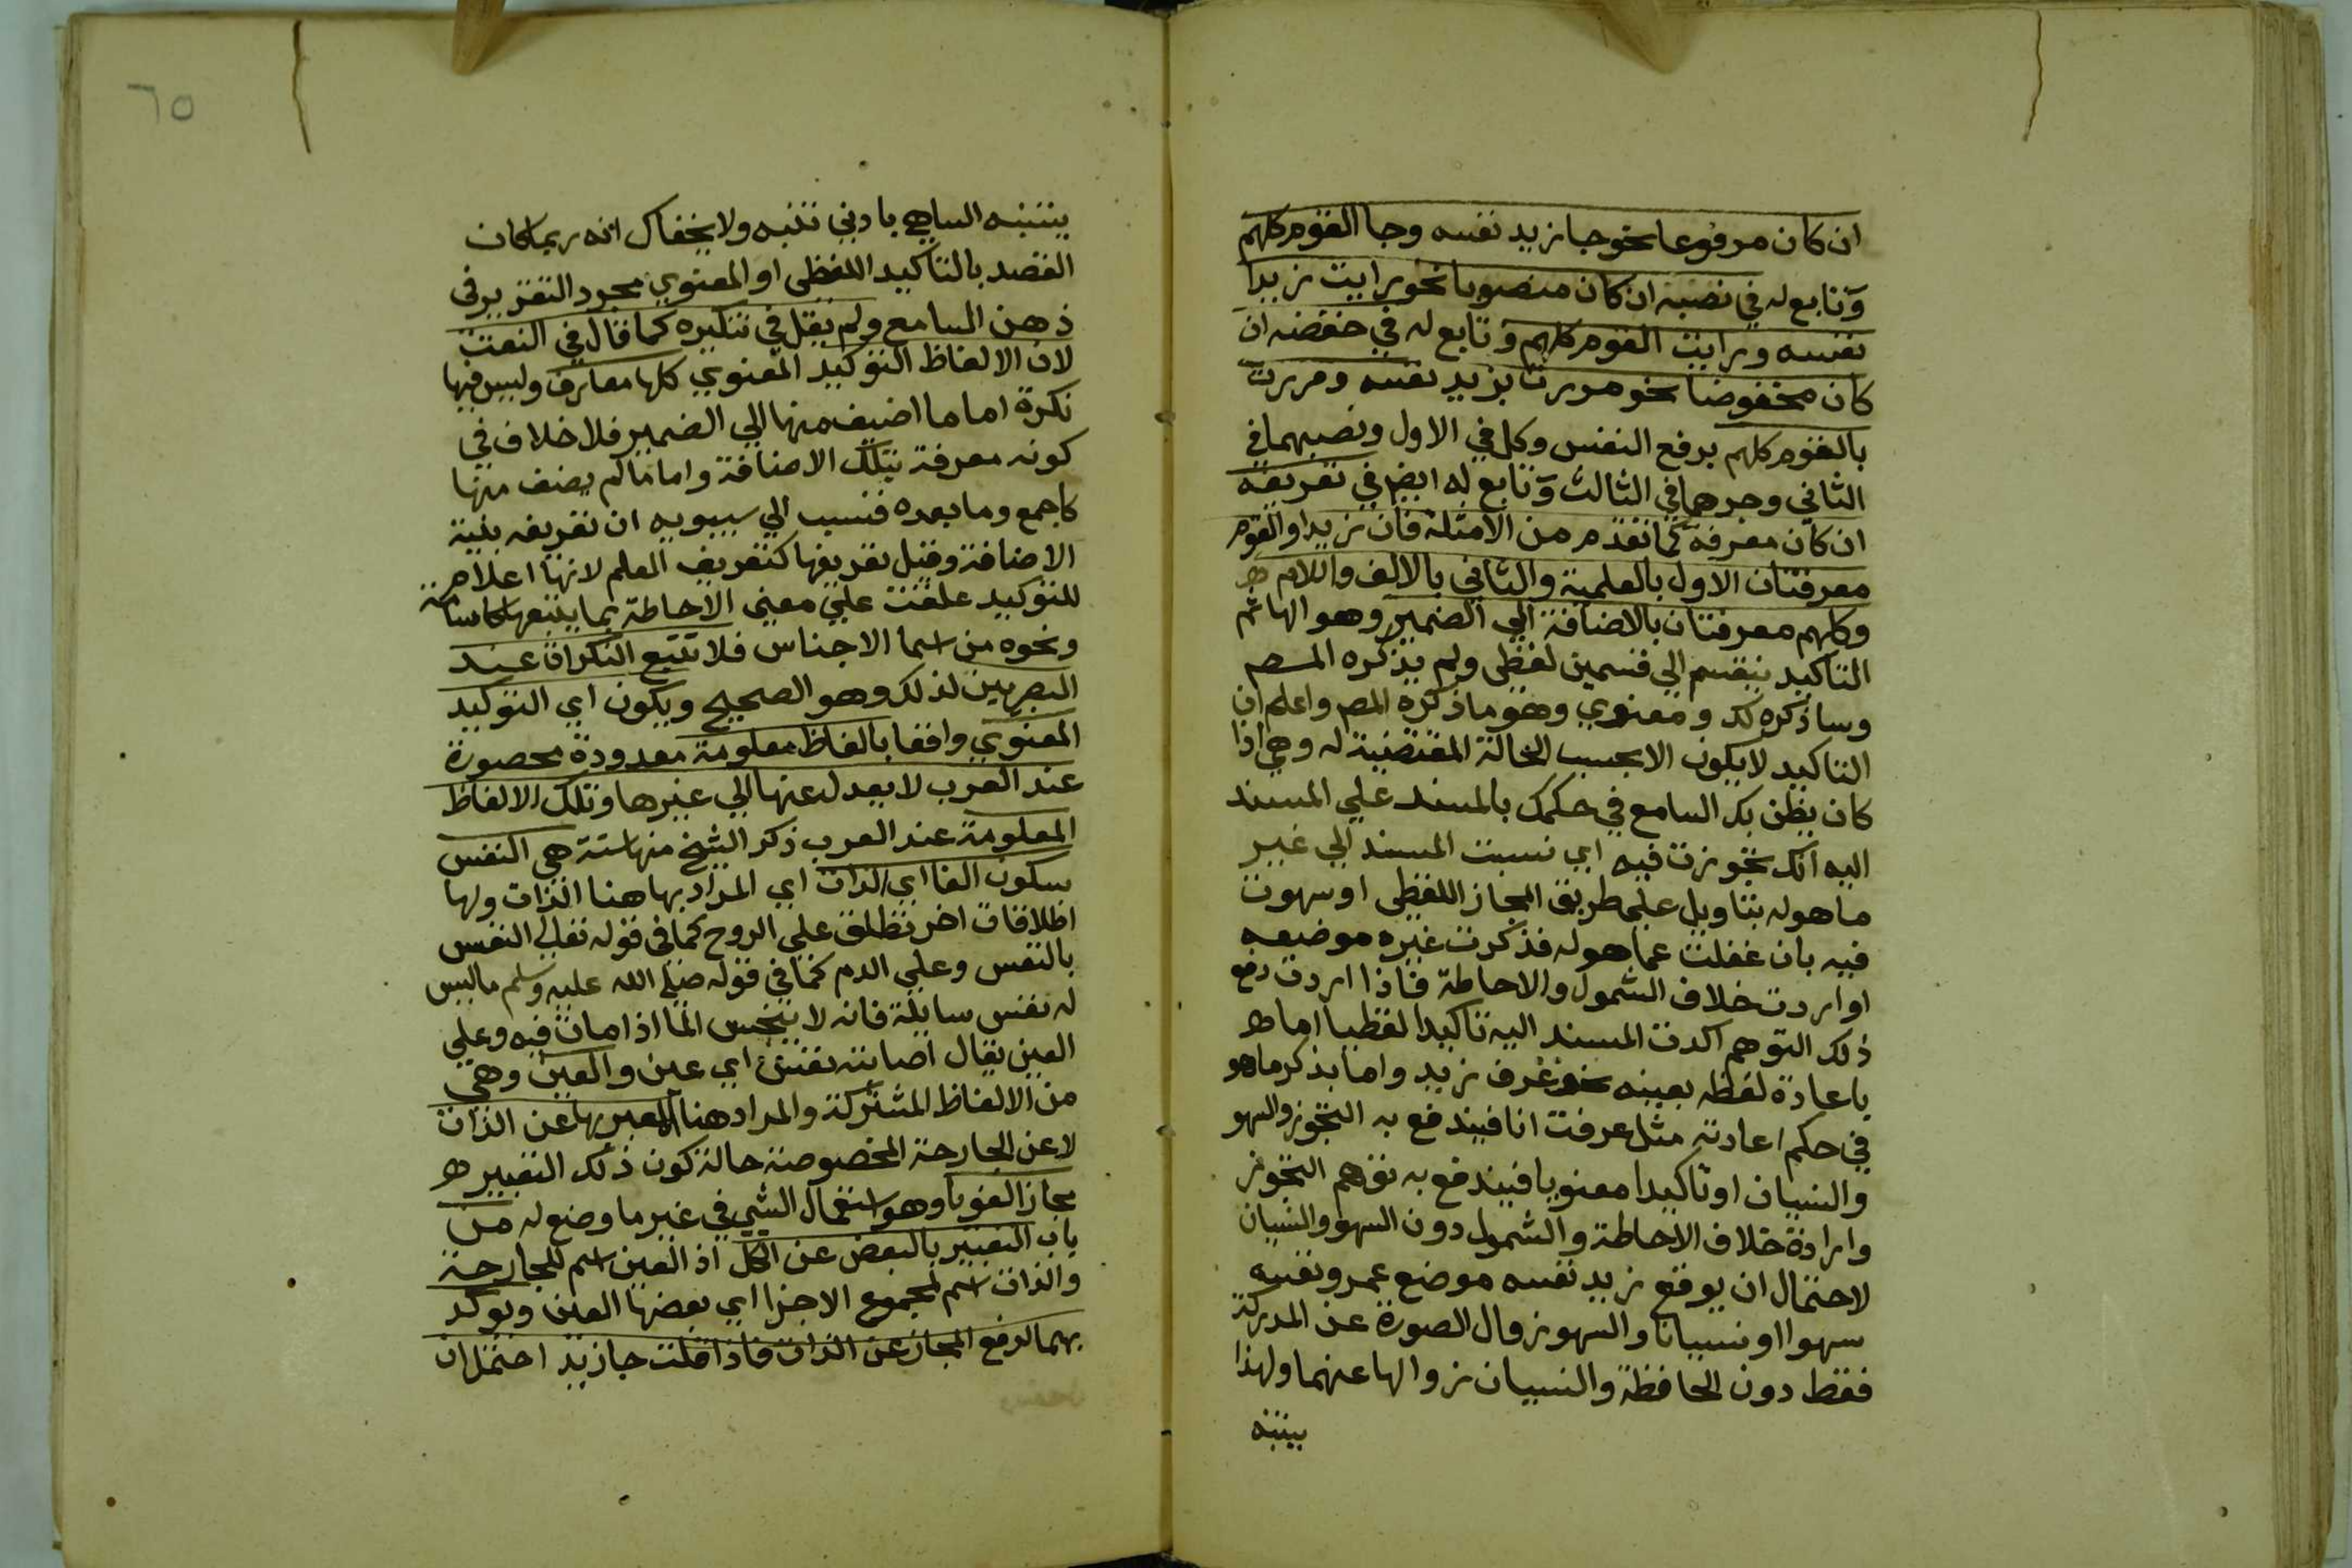 ان كان مرفوعا نحو جا زيد نفسه وجا القوم كلهم
وتابع له في نصبه ان كان منصوبا نحو رايت زيدا
نفسه ورايت القوم كلهم وتابع له في خفضه ان
كان مخفوضا نحو مررت بزيد نفسه ومررت
بالقوم كلهم برفع النفس وكل في الاول ونصبهما في
الثاني وجرهما في الثالث وتابع له ايضا في تعريفه
ان كان معرفة كما تقدم من الامثلة فان زيدا والقوم
معرفتان الاول بالعلمية والثاني بالالف واللام
وكلهم معرفتان بالاضافة الي الضمير وهو الها ثم
التاكيد ينقسم الي قسمين لفظي ولم يذكره المص
وساذكره لك ومعنوي وهو ما ذكره المص واعلم ان
التاكيد لا يكون الا بحسب الحالة المقتضية له وهي اذا
كان يظن بك السامع في حكمك بالمسند علي المسند
اليه انك تجوزت فيه اي نسبت المسند الي غير
ما هو له بتاويل علي طريق المجاز اللفظي او سهوت
فيه بان غفلت عما هو له فذكرت غيره موضعه
او اردت خلاف الشمول والاحاطة فاذا اردت دفع
ذلك التوهم اكدت المسند اليه تاكيدا لفظيا اما
باعادة لفظه بعينه نحو عرف زيد واما بذكر ما هو
في حكم اعادته مثل عرفت انا فيندفع به التجوز والسهو
والنسيان او تاكيدا معنويا فيندفع به توهم التجوز
وارادة خلاف الاحاطة والشمول دون السهو والنسيان
لاحتمال ان يوقع زيد نفسه موضع عمرو نفسه
سهوا او نسيانا والسهو زوال الصورة عن المدركة
فقط دون الحافظة والنسيان زوالها عنهما ولهذا
يتنبه
٦٥
يتنبه الساهي بادني تنبه ولا يخفاك انه ربما كان
القصد بالتاكيد اللفظي او المعنوي مجرد التقرير في
ذهن السامع ولم يقل في تنكيره كما قال في النعت
لان الالفاظ التوكيد المعنوي كلها معارف وليس فيها
نكرة اما ما اضيف منها الي الضمير فلا خلاف في
كونه معرفة بتلك الاضافة واما ما لم يضف منها
كاجمع وما بعده فنسب الي سيبويه ان تعريفه بنية
الاضافة وقيل تعريفها كتعريف العلم لانها اعلام
للتوكيد علقت علي معني الاحاطة بما يتبعها كاسامة
ونحوه من اسما الاجناس فلا تتبع النكرات عند
البصريين لذلك وهو الصحيح ويكون اي التوكيد
المعنوي واقفا بالفاظ معلومة معدودة محصورة
عند العرب لا يعدل عنها الي غيرها وتلك الالفاظ
المعلومة عند العرب ذكر الشيخ منها ستة هي النفس
بسكون الفا اي الذات اي المراد بها هنا الذات ولها
اطلاقات اخر تطلق علي الروح كما في قوله تعالي النفس
بالنفس وعلي الدم كما في قوله صلي الله عليه وسلم ما ليس
له نفس سايلة فانه لا ينجس الما اذا مات فيه وعلي
العين يقال اصابته نفس اي عين والعين وهي
من الالفاظ المشتركة والمراد هنا المعبر بها عن الذات
لا عن الجارحة المخصوصة حالة كون ذلك التعبير
مجازا لغويا وهو استعمال الشي في غير ما وضع له من
باب التعبير بالبعض عن الكل اذ العين اسم للجارحة
والذات اسم لمجموع الاجزا اي بعضها العين ويوكد
بهما لرفع المجاز عن الذات فاذا قلت جا زيد احتمل ان